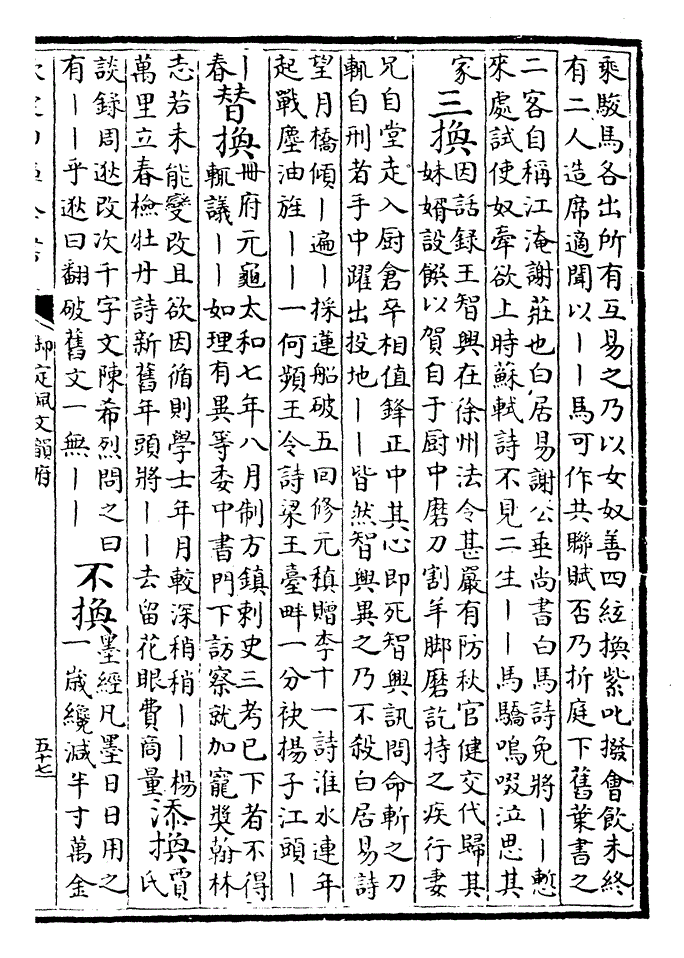 乘駿馬各出所有互易之乃以女奴善四絃換紫叱撥會飲未終
有二人造席適聞以丨丨馬可作共聯賦否乃折庭下舊葉書之
二客自稱江淹謝莊也白居易謝公垂尚書白馬詩免將丨丨慙
來處試使奴牽欲上時蘇軾詩不見二生丨丨馬驕鳴啜泣思其
家
三換
因話錄王智興在徐州法令甚嚴有防秋官健交代歸其
妹婿設饌以賀自于厨中磨刀割羊脚磨訖持之疾行妻
兄自堂走入厨倉卒相值鋒正中其心即死智興訊問命斬之刀
輒自刑者手中躍出投地丨丨皆然智興異之乃不殺白居易詩
望月橋傾丨遍丨採蓮船破五回修元稹贈李十一詩淮水連年
起戰塵油旌丨丨一何頻王令詩梁王臺畔一分袂揚子江頭丨
丨
春
替換
冊府元龜太和七年八月制方鎮刺史三考已下者不得
輒議丨丨如理有異等委中書門下訪察就加寵獎翰林
志若未能變改且欲因循則學士年月較深稍稍丨丨楊
萬里立春檢牡丹詩新舊年頭將丨丨去留花眼費商量
添換
賈
氏
談錄周逖改次千字文陳希烈問之曰
有丨丨乎逖曰翻破舊文一無丨丨
不換
墨經凡墨日日用之
一歲纔減半寸萬金
御定佩文韻府
五十七